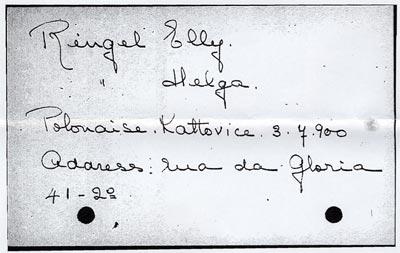 Ringel Elly.
" Helga.
Polonaise. Kattovice. 3.7.900
Address: rua da Gloria
41-2º